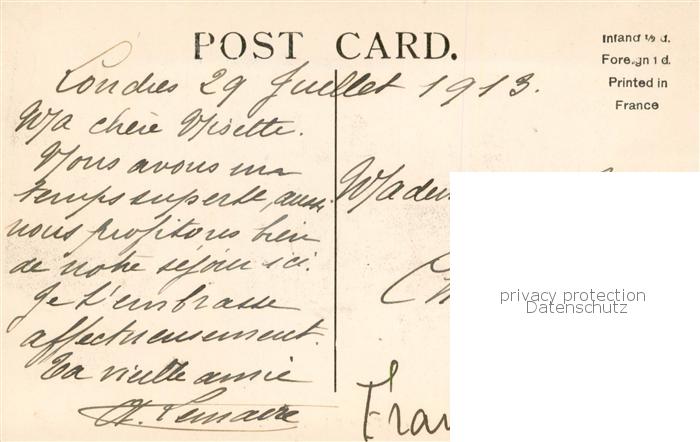 POST CARD.
Inland ½ d.
Foreign 1 d.
Printed in
France
Londres 29 Juillet 1913.
Ma chère Misette.
Nous avons un
temps superbe, aussi
nous profitons bien
de notre séjour ici.
Je t'embrasse
affectueusement.
Ta vieille amie
Lemaire
privacy protection
Datenschutz
Fran